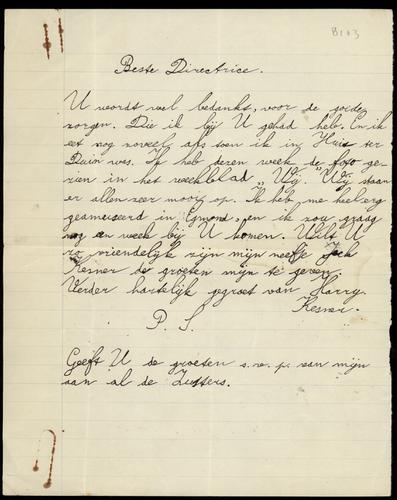 8103
Beste Directrice.
U wordt wel bedankt, voor de goede
zorgen. Die ik bij U gehad heb. En ik
eet nog zoveel als toen ik in Huis ter
Duin was. Ik heb dezen week de foto ge-
zien in het weekblad „Wij." Wij staan
er allen zeer mooi op. Ik heb me heel erg
geamuseerd in Egmond, en ik zou graag
nog en week bij U komen. Wilt U
zo vriendelijk zijn mijn neefje Jack
Kesner de groeten mijn te geven.
Verder hartelijk gegroet van Harry
Kesner.
P. S.
Geeft U de groeten s.v.p. van mijn
aan al de Zusters.